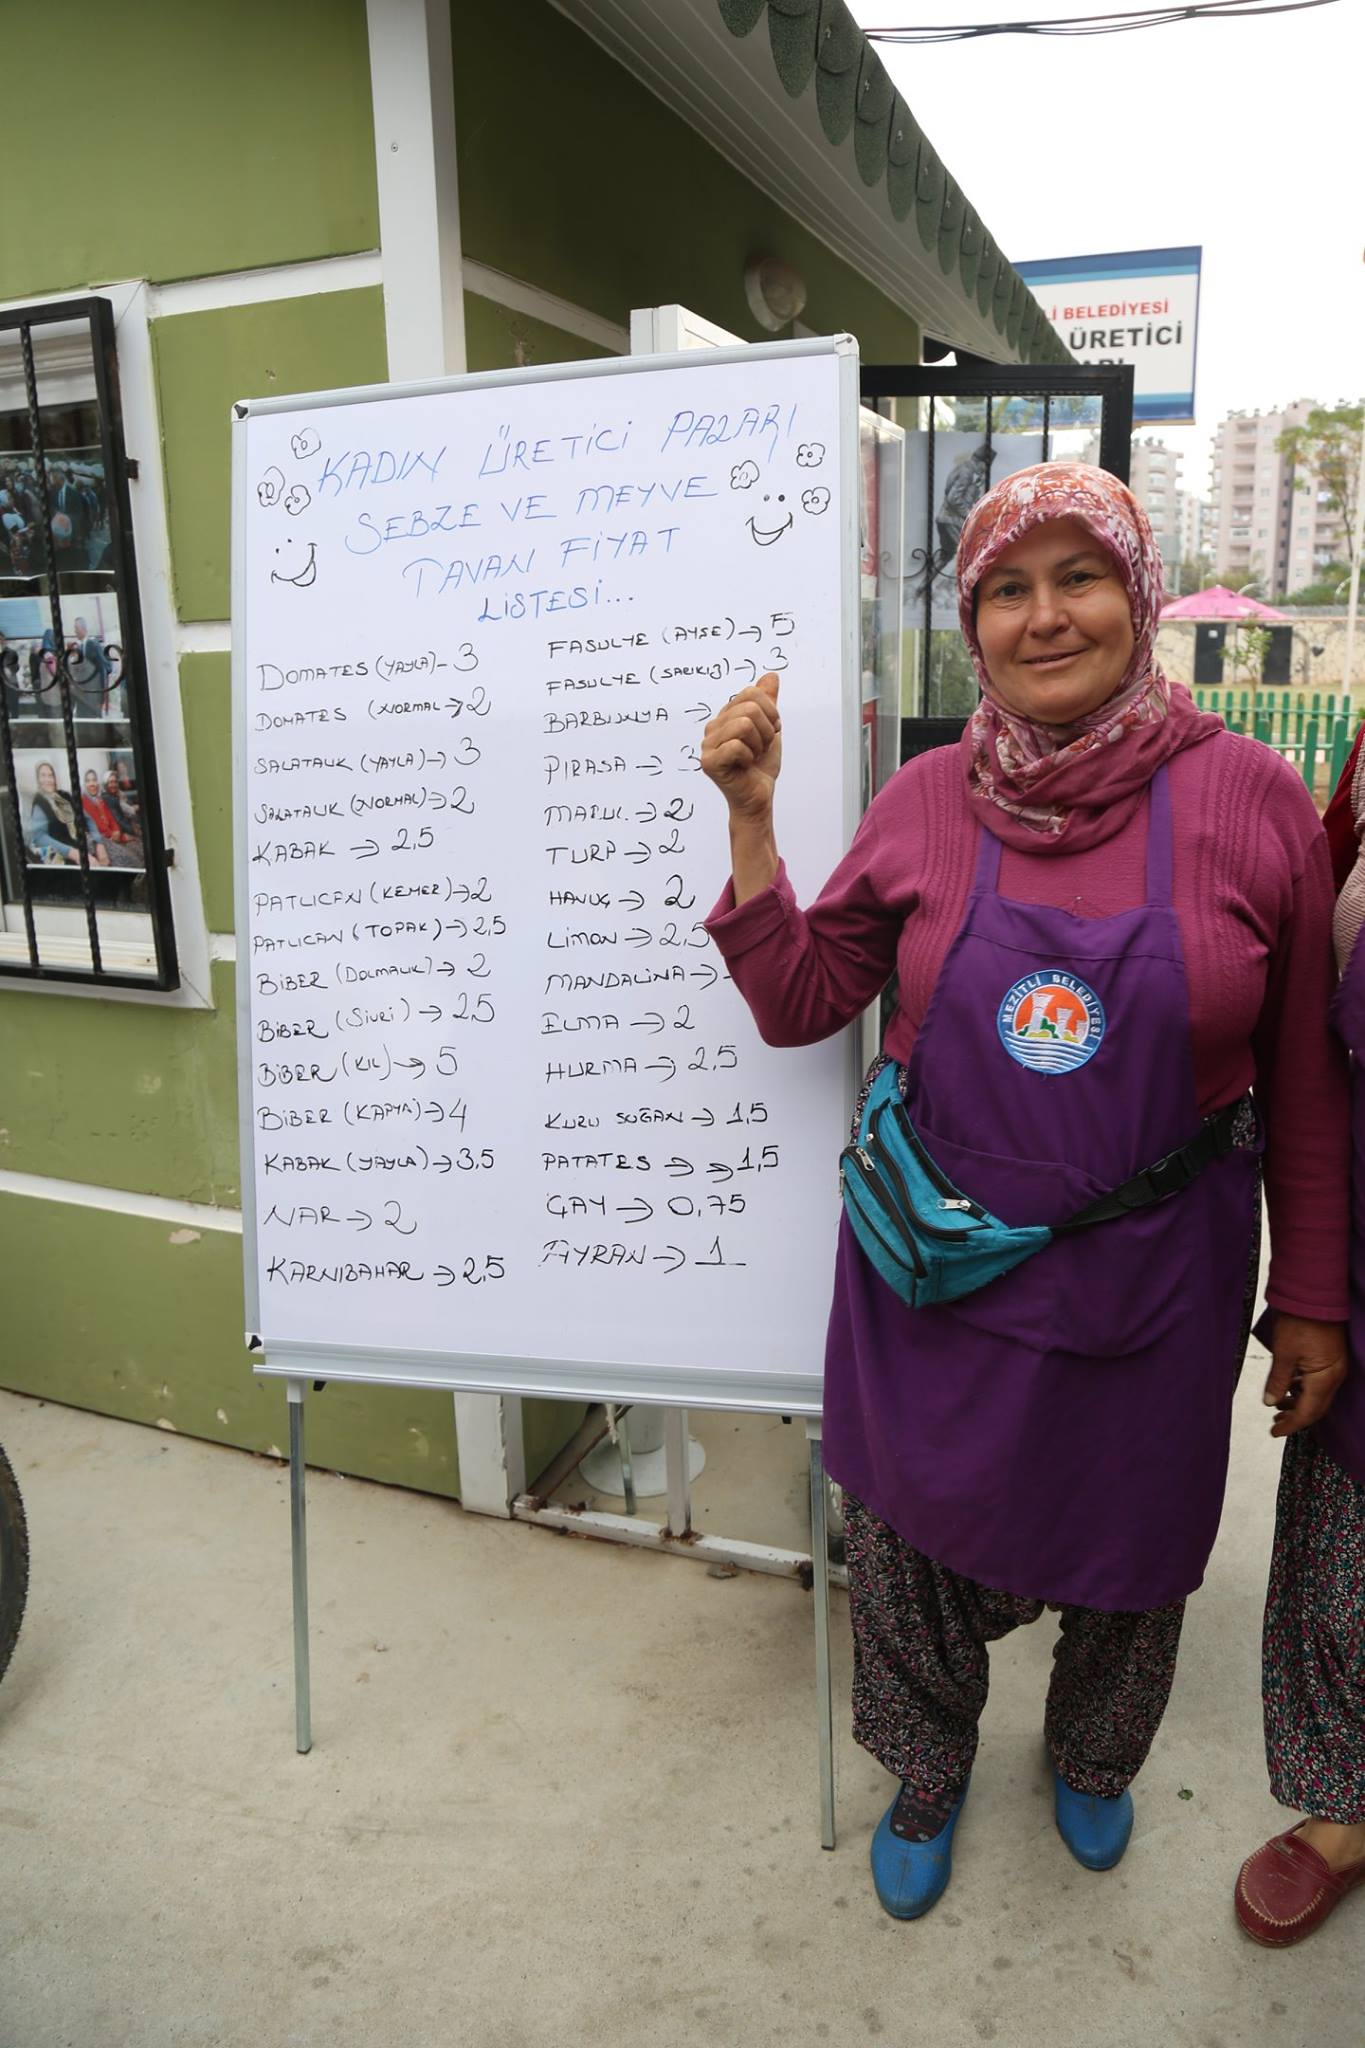 Lİ BELEDİYESİ
ÜRETİCİ
KADIN ÜRETİCİ PAZARI
SEBZE VE MEYVE
TAVAN FİYAT
LİSTESİ...
DOMATES (YAYLA) - 3
DOMATES (NORMAL → 2
SALATALIK (YAYLA) → 3
SALATALIK (NORMAL) → 2
KABAK → 2,5
PATLICAN (KEMER) → 2
PATLICAN (TOPAK) → 2,5
BİBER (DOLMALIK) → 2
BİBER (SİVRİ) → 2,5
BİBER (KIL) → 5
BİBER (KAPYA) → 4
KABAK (YAYLA) → 3,5
NAR → 2
KARNIBAHAR → 2,5
FASULYE (AYŞE) → 5
FASULYE (SARIKIZ) → 3
BARBUNYA →
PIRASA → 3
MARUL → 2
TURP → 2
HAVUÇ → 2
LİMON → 2,5
MANDALİNA →
ELMA → 2
HURMA → 2,5
KURU SOĞAN → 1,5
PATATES → → 1,5
ÇAY → 0,75
AYRAN → 1
MEZİTLİ BELEDİYESİ